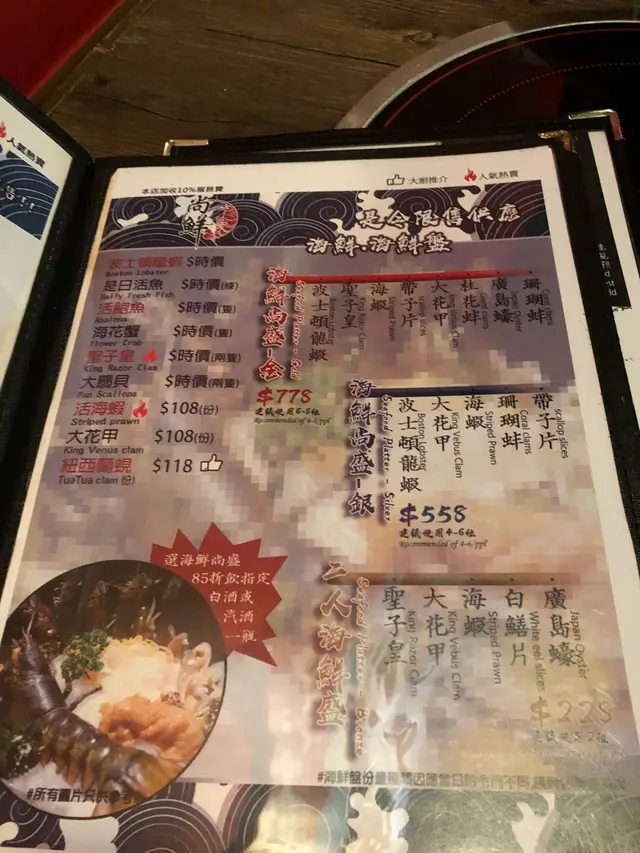 人氣熱賣
本店加收10%服務費
大廚推介
人氣熱賣
尚鮮
是令限售供應
海鮮.海鮮盤
波士頓龍蝦 $時價
Boston Lobster
是日活魚 $時價(條)
Daily Fresh Fish
活鮑魚 $時價(隻)
Abalone
海花蟹 $時價(隻)
Flower Crab
聖子皇 $時價(兩隻)
King Razor Clam
大扇貝 $時價(兩隻)
Pan Scallops
活海蝦 $108(份)
Striped prawn
大花甲 $108(份)
King Venus clam
紐西蘭蜆 $118
TuaTua clam 份)
海鮮尚盛-金
Seafood Platter - Gold
波士頓龍蝦
Boston Lobster
聖子皇
King Razor Clam
海蝦
Striped Prawn
帶子片
scallop slices
大花甲
King Vebus Clam
桂花蚌
廣島蠔
珊瑚蚌
Coral clams
$778
建議使用6-8位
Recommended of 6-8/ppl
海鮮尚盛-銀
Seafood Platter - Silver
波士頓龍蝦
Boston Lobster
大花甲
King Vebus Clam
海蝦
Striped Prawn
珊瑚蚌
Coral clams
帶子片
scallop slices
$558
建議使用4-6位
Recommended of 4-6/ppl
二人海鮮盛
Seafood Platter - Bronze
聖子皇
King Razor Clam
大花甲
King Vebus Clam
海蝦
Striped Prawn
白鱔片
White eel slices
廣島蠔
Japan Oyster
$228
建議使用2位
選海鮮尚盛
85折飲指定
白酒或
汽酒
一瓶
#所有圖片只供參考
#海鮮盤份量